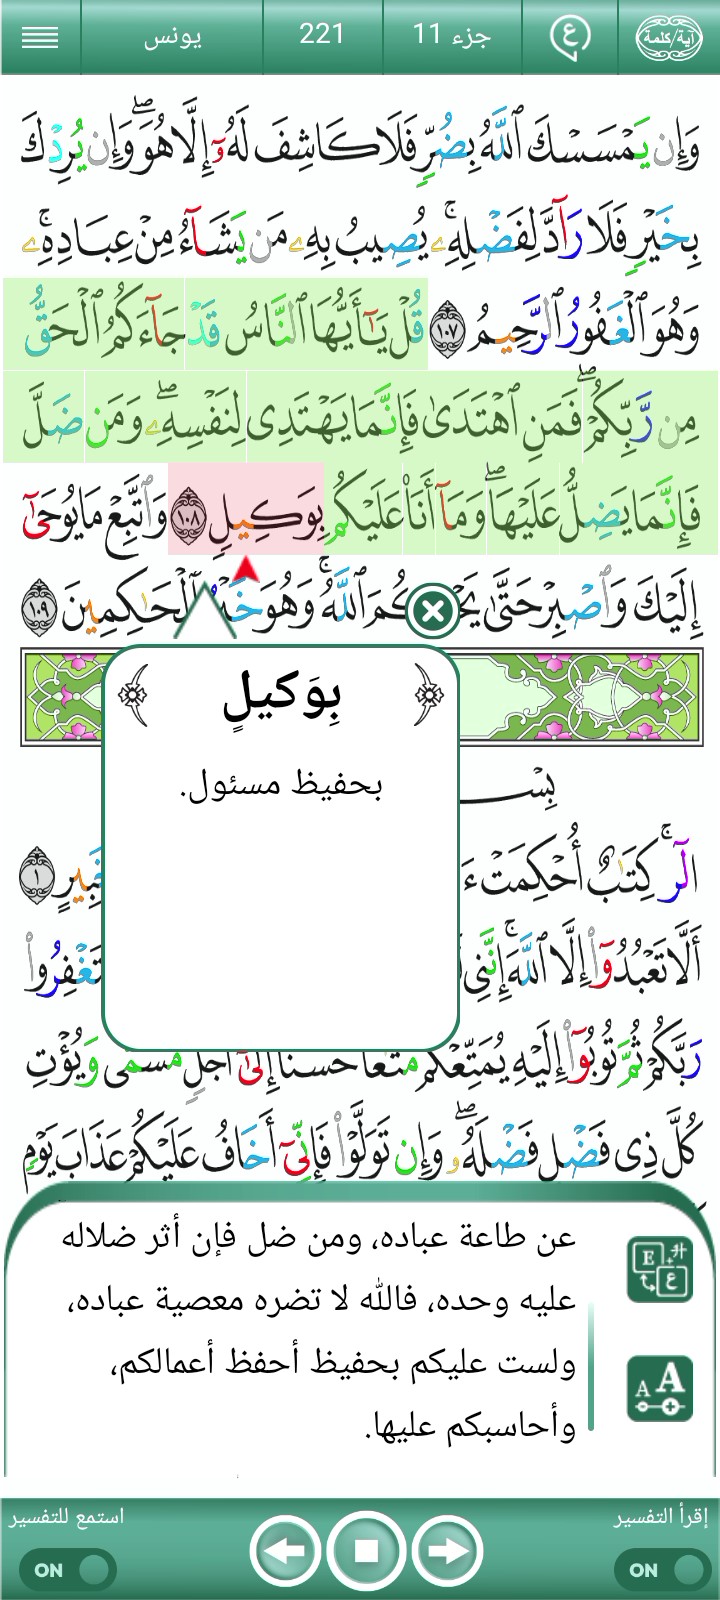 آية/كلمة
ع
جزء 11
221
يونس
وَإِن يَمْسَسْكَ ٱللَّهُ بِضُرٍّ فَلَا كَاشِفَ لَهُۥٓ إِلَّا هُوَ ۖ وَإِن يُرِدْكَ
بِخَيْرٍ فَلَا رَآدَّ لِفَضْلِهِۦ ۚ يُصِيبُ بِهِۦ مَن يَشَآءُ مِنْ عِبَادِهِۦ ۚ
وَهُوَ ٱلْغَفُورُ ٱلرَّحِيمُ ١٠٧ قُلْ يَـٰٓأَيُّهَا ٱلنَّاسُ قَدْ جَآءَكُمُ ٱلْحَقُّ
مِن رَّبِّكُمْ ۖ فَمَنِ ٱهْتَدَىٰ فَإِنَّمَا يَهْتَدِى لِنَفْسِهِۦ ۖ وَمَن ضَلَّ
فَإِنَّمَا يَضِلُّ عَلَيْهَا ۖ وَمَآ أَنَا۠ عَلَيْكُم بِوَكِيلٍ ١٠٨ وَٱتَّبِعْ مَا يُوحَىٰٓ
إِلَيْكَ وَٱصْبِرْ حَتَّىٰ يَحْكُمَ ٱللَّهُ ۚ وَهُوَ خَيْرُ ٱلْحَـٰكِمِينَ ١٠٩
بِوَكيلٍ
بحفيظ مسئول.
بِسْ
الٓر ۚ كِتَـٰبٌ أُحْكِمَتْ خَبِيرٍ ١
أَلَّا تَعْبُدُوٓا۟ إِلَّا ٱللَّهَ ۚ إِنَّنِى
رَبَّكُمْ ثُمَّ تُوبُوٓا۟ إِلَيْهِ يُمَتِّعْكُم مَّتَـٰعًا حَسَنًا إِلَىٰٓ أَجَلٍ مُّسَمًّى وَيُؤْتِ
كُلَّ ذِى فَضْلٍ فَضْلَهُۥ ۖ وَإِن تَوَلَّوْا۟ فَإِنِّىٓ أَخَافُ عَلَيْكُمْ عَذَابَ يَوْمٍ
عن طاعة عباده، ومن ضل فإن أثر ضلاله
عليه وحده، فالله لا تضره معصية عباده،
ولست عليكم بحفيظ أحفظ أعمالكم،
وأحاسبكم عليها.
E ع
A A
إقرأ التفسير
استمع للتفسير
ON
ON